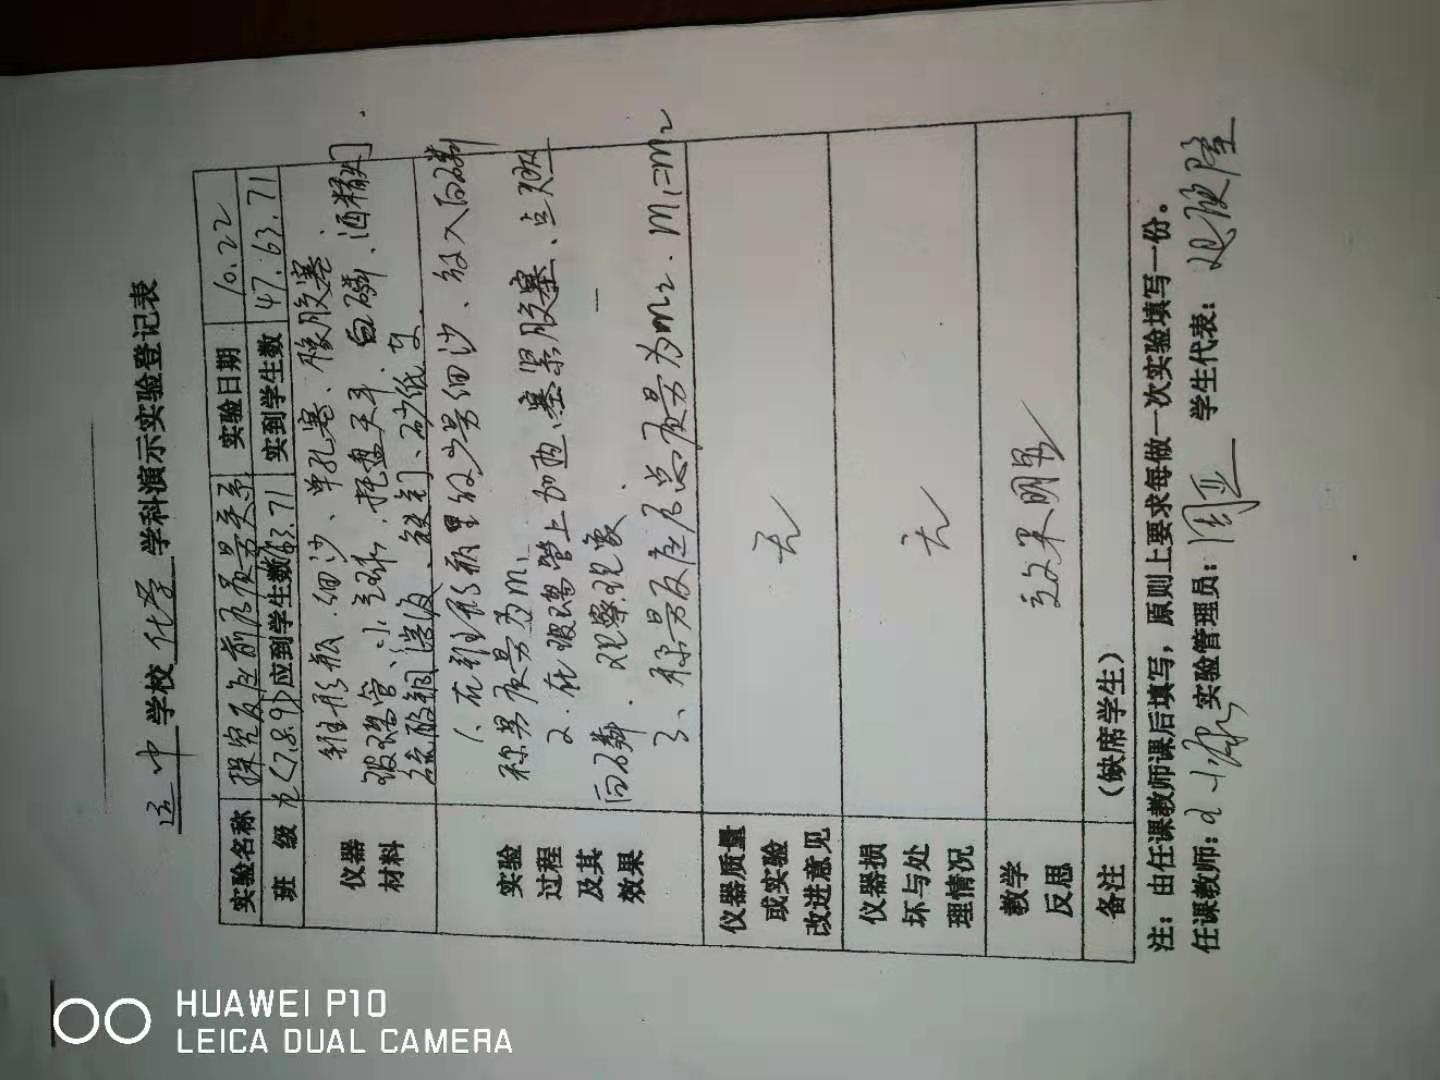 中 学校 化学 学科演示实验登记表
实验名称 探究反应前后质量关系 实验日期 10.22
班 级 九(7.8.9) 应到学生数 63.71 实到学生数 47.63.71
仪器材料 锥形瓶、细沙、单孔塞、橡胶塞、
玻璃管、小气球、托盘天平、白磷、酒精灯
硫酸铜溶液、铁钉、砂纸
实验过程及其效果 1、在锥形瓶里放少量细沙、放入白磷
称量质量为m₁
2、在玻璃管上加 、塞紧胶塞、点燃
白磷、观察现象
3、称量反应后总质量为m₂. m₁=m₂
仪器质量或实验改进意见 无
仪器损坏与处理情况 无
教学反思 效果明显
备注 (缺席学生)
注：由任课教师课后填写，原则上要求每做一次实验填写一份。
任课教师： 实验管理员： 学生代表：
HUAWEI P10
LEICA DUAL CAMERA